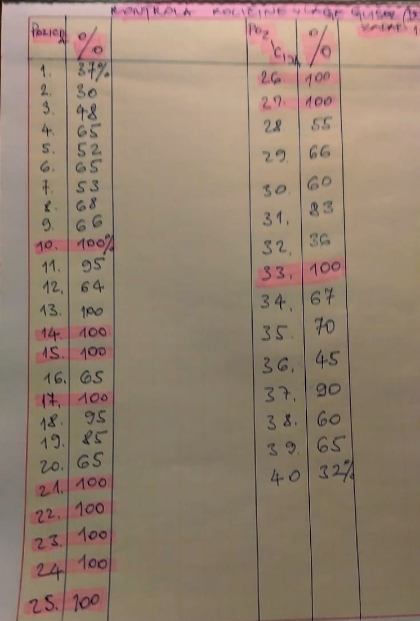 KONTROLA KOLIČINE VLAGE
%
1. 37%
2. 30
3. 48
4. 65
5. 52
6. 65
7. 53
8. 68
9. 66
10. 100%
11. 95
12. 64
13. 100
14. 100
15. 100
16. 65
17. 100
18. 95
19. 85
20. 65
21. 100
22. 100
23. 100
24 100
25. 100
%
26 100
27. 100
28 55
29. 66
30. 60
31. 83
32. 36
33. 100
34. 67
35. 70
36. 45
37. 90
38. 60
39. 65
40 32%